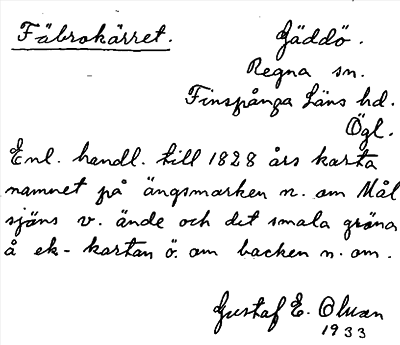 Fäbrokärret.
Gäddö.
Regna sn.
Finspånga Läns hd.
Ögl.
Enl. handl. till 1828 års karta
namnet på ängsmarken n. om Mål
sjöns v. ände och det smala gröna
å ek-kartan ö. om backen n. om.
Gustaf E. Olsson
1933